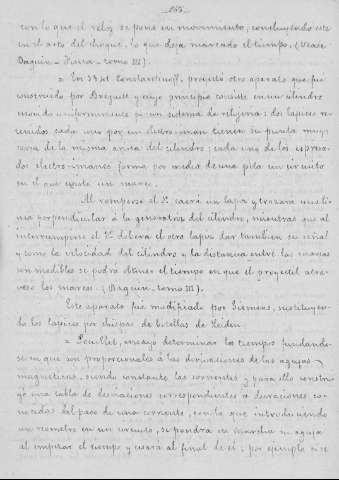 con lo que el reloj se pone en movimiento, concluyendo este
en el acto del choque, lo que deja marcado el tiempo. (Vease
Daguin - Fisica - tomo III)
= En 1844 Constantinoff, proyectó otro aparato que fué
construido por Breguet y cuyo principio consiste en un cilindro
movido uniformemente por un sistema de relojeria: dos lapices
tenidos cada uno por un electro-iman tienen su punta muy
cerca de la misma arista del cilindro; cada uno de los expresa-
dos electro-imanes forma por medio de una pila un circuito
en el que existe un marco.
Al romperse el 1º caerá un lapiz y trazará una linea
perpendicular á la generatriz del cilindro, mientras que al
interrumpirse el 2º deberá el otro lapiz dar tambien su señal
y como la velocidad del cilindro y la distancia entre las marcas
son medibles se podrá obtener el tiempo en que el proyectil atra-
vesó los marcos. (Daguin, tomo III).
Este aparato fué modificado por Siemens, sustituyen-
do los lapices por chispas de botellas de Leiden.
= Pouillet, ensayó determinar los tiempos fundando-
se en que son proporcionales á las desviaciones de las agujas
magneticas, siendo constante las corrientes y para ello constru-
yó una tabla de desviaciones correspondientes a duraciones co-
nocidas del paso de una corriente, con lo que introduciendo
un reometro en un circuito, se pondrá en marcha su aguja
al empezar el tiempo y cesará al final de él; por ejemplo si se